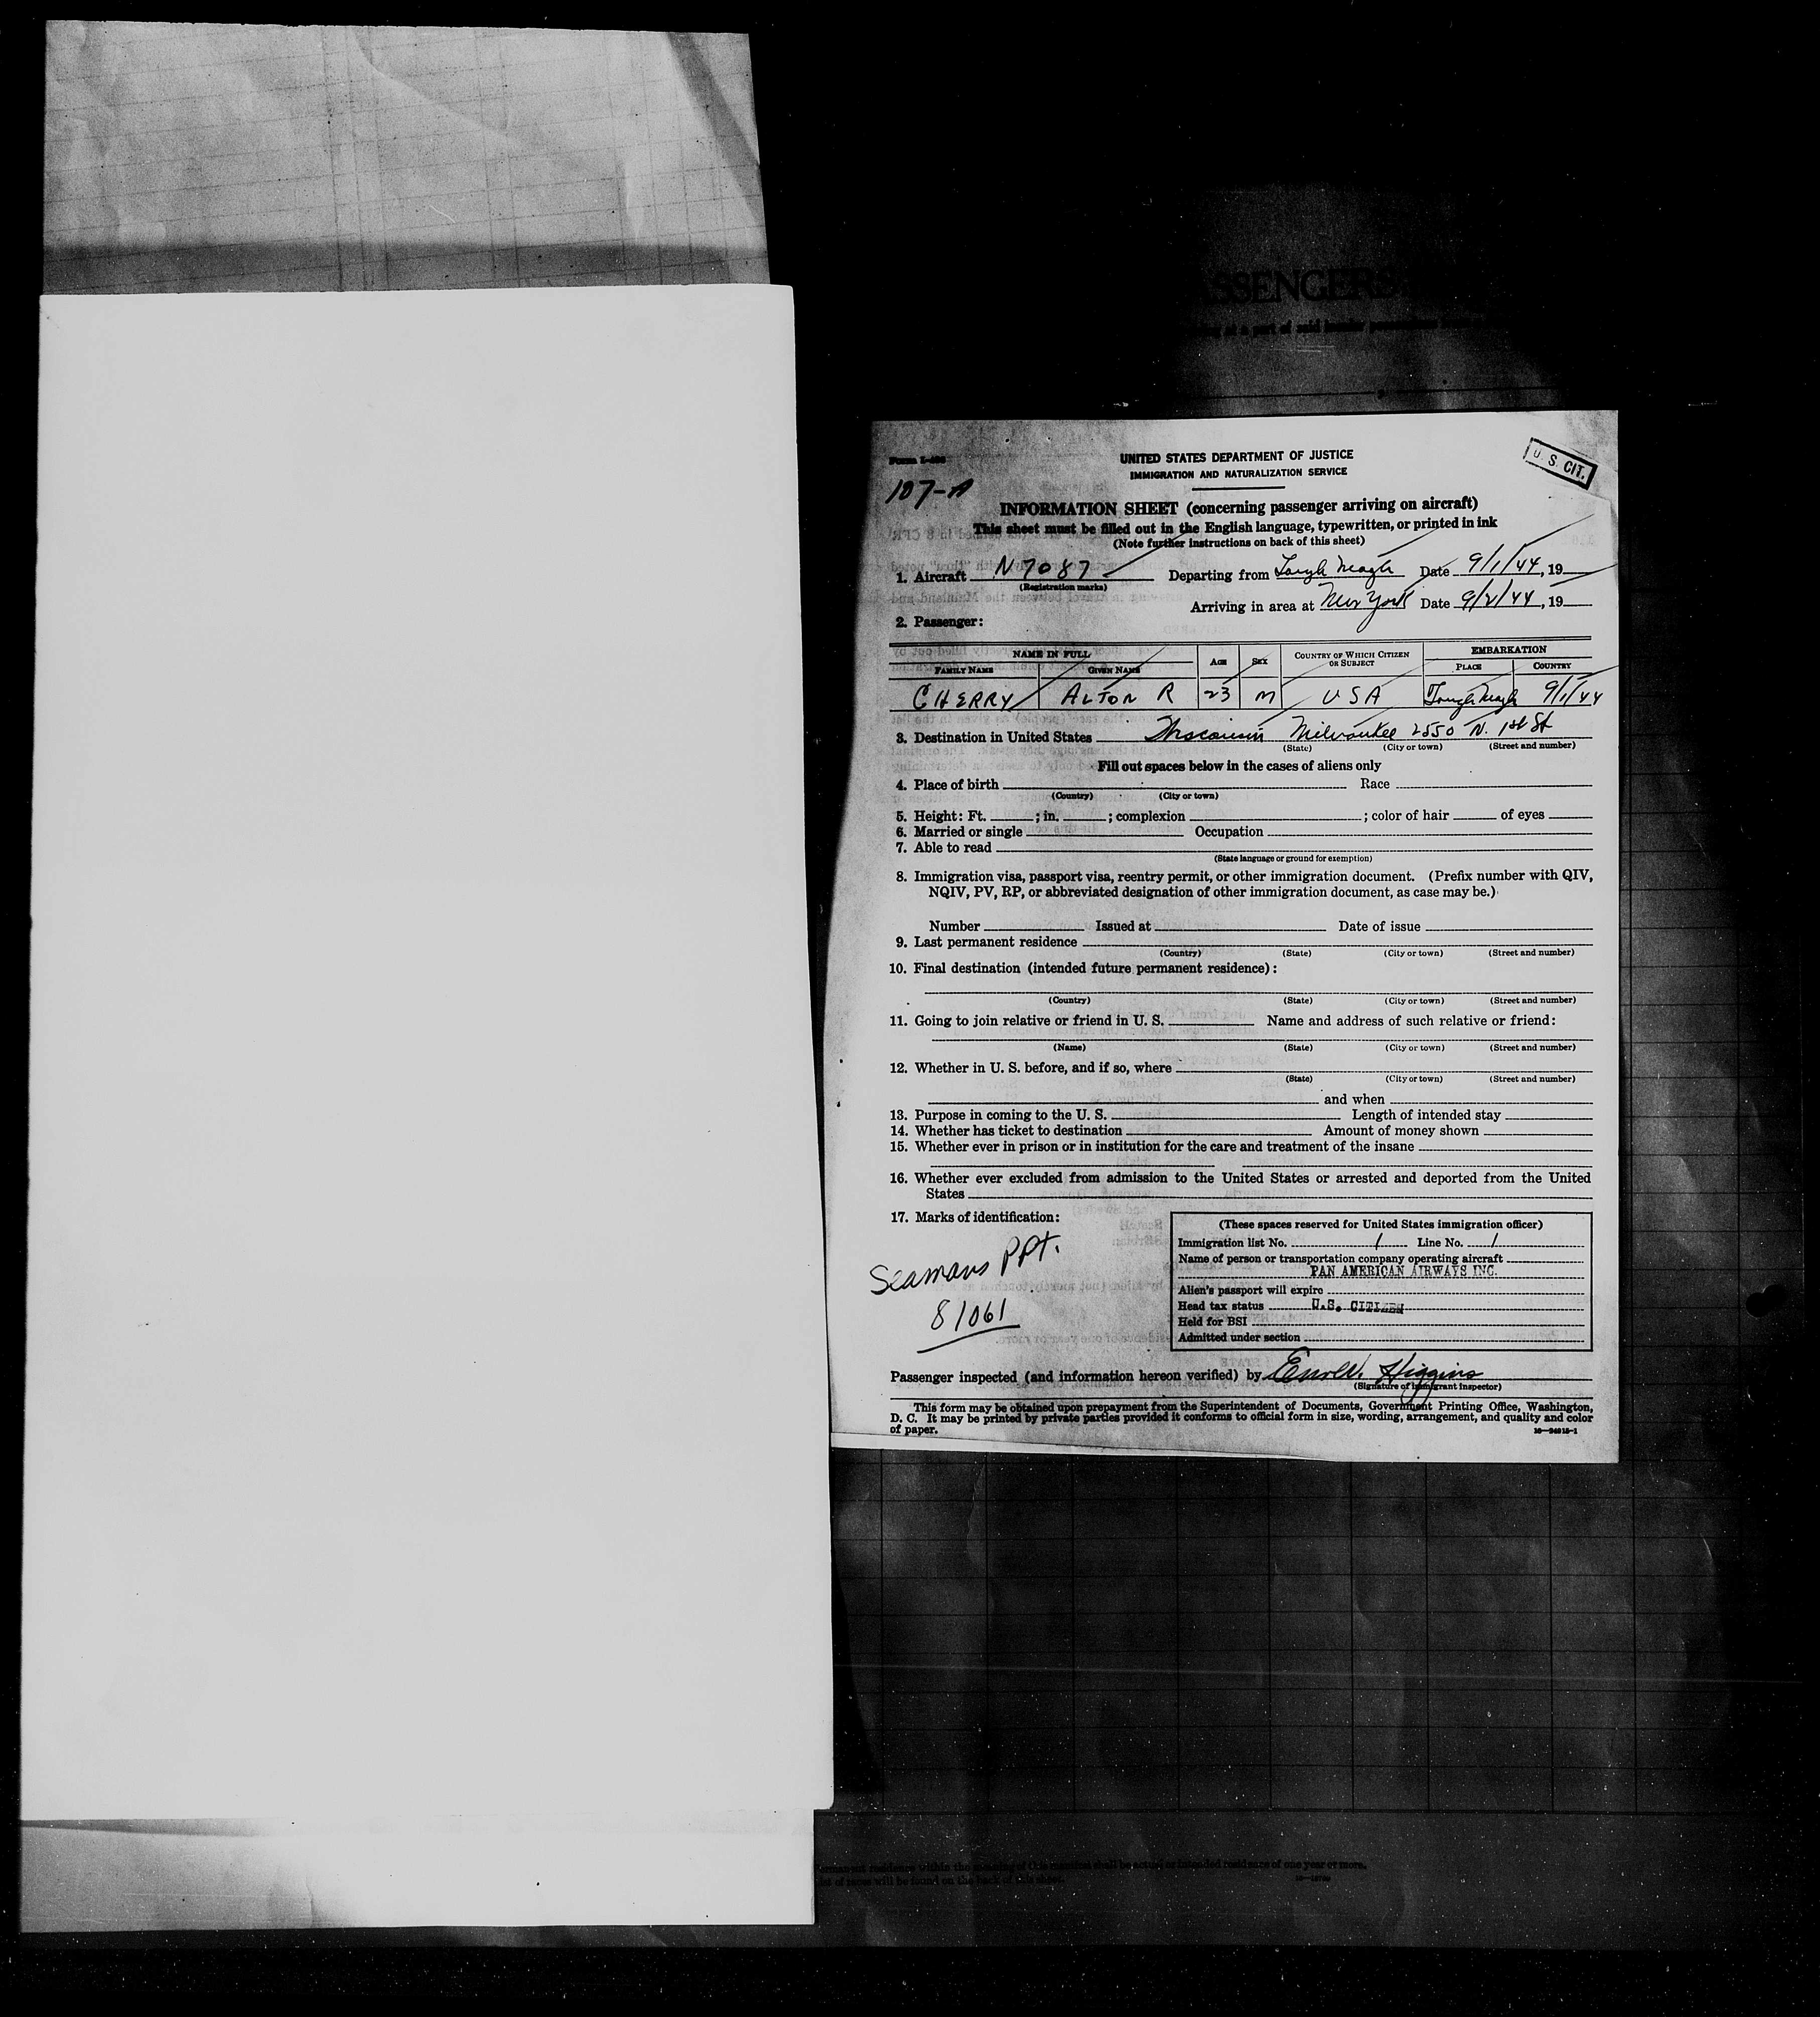 ASSENGERS
Form I-466
107-A
U. S. CIT.
UNITED STATES DEPARTMENT OF JUSTICE
IMMIGRATION AND NATURALIZATION SERVICE
INFORMATION SHEET (concerning passenger arriving on aircraft)
This sheet must be filled out in the English language, typewritten, or printed in ink
(Note further instructions on back of this sheet)
1. Aircraft N7087 Departing from Lough Neagh Date 9/1/44, 19
(Registration marks)
Arriving in area at New York Date 9/2/44, 19
2. Passenger:
NAME IN FULL AGE SEX COUNTRY OF WHICH CITIZEN OR SUBJECT EMBARKATION
FAMILY NAME GIVEN NAME PLACE COUNTRY
CHERRY ALTON R 23 M USA Lough Neagh 9/1/44
3. Destination in United States Wisconsin Milwaukee 2550 N. 1st St
(State) (City or town) (Street and number)
Fill out spaces below in the cases of aliens only
4. Place of birth Race
(Country) (City or town)
5. Height: Ft. ; in. ; complexion ; color of hair of eyes
6. Married or single Occupation
7. Able to read
(State language or ground for exemption)
8. Immigration visa, passport visa, reentry permit, or other immigration document. (Prefix number with QIV,
NQIV, PV, RP, or abbreviated designation of other immigration document, as case may be.)
Number Issued at Date of issue
9. Last permanent residence
(Country) (State) (City or town) (Street and number)
10. Final destination (intended future permanent residence):
(Country) (State) (City or town) (Street and number)
11. Going to join relative or friend in U. S. Name and address of such relative or friend:
(Name) (State) (City or town) (Street and number)
12. Whether in U. S. before, and if so, where
(State) (City or town) (Street and number)
and when
13. Purpose in coming to the U. S. Length of intended stay
14. Whether has ticket to destination Amount of money shown
15. Whether ever in prison or in institution for the care and treatment of the insane
16. Whether ever excluded from admission to the United States or arrested and deported from the United
States
17. Marks of identification:
Seamans PPt.
81061
(These spaces reserved for United States immigration officer)
Immigration list No. 1 Line No. 1
Name of person or transportation company operating aircraft
PAN AMERICAN AIRWAYS INC.
Alien's passport will expire
Head tax status U.S. CITIZEN
Held for BSI
Admitted under section
Passenger inspected (and information hereon verified) by Higgins
(Signature of immigrant inspector)
This form may be obtained upon prepayment from the Superintendent of Documents, Government Printing Office, Washington,
D. C. It may be printed by private parties provided it conforms to official form in size, wording, arrangement, and quality and color
of paper.
Permanent residence within the meaning of this manifest shall be actual or intended residence of one year or more.
list of races will be found on the back of this sheet.